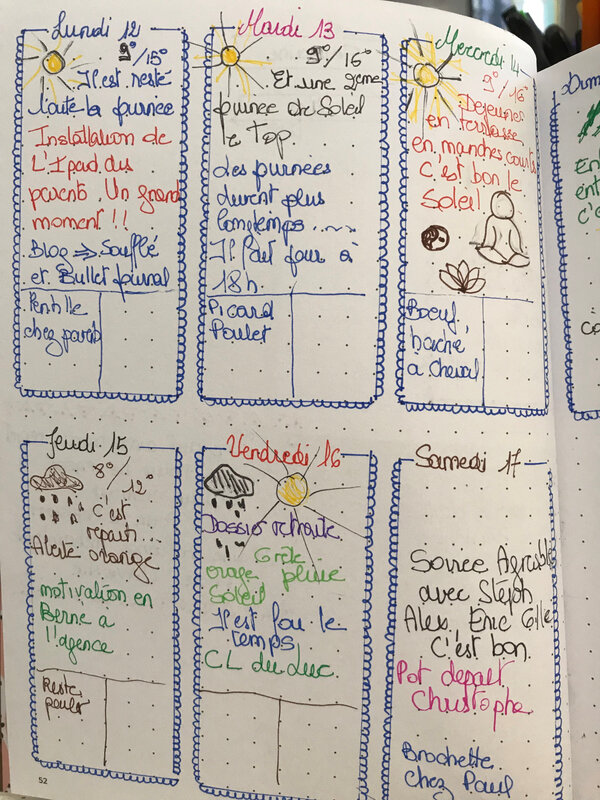 Lundi 12
9°/15°
Il est resté
toute la journée
Installation de
L'Ipad des
parents. Un grand
moment !!
Blog => Soufflé
et Bullet journal
chez parents
Mardi 13
9°/16°
Et une 2ème
journée de Soleil
le top
des journées
durent plus
longtemps.....
Il fait jour à
18h.
Picard
Poulet
Mercredi 14
9°/16°
Dejeuner
en terrasse
en manches courtes
C'est bon le
Soleil
Boeuf,
haché
à cheval
Jeudi 15
8°/12°
C'est
reparti...
Alerte orange
motivation en
Berne à
l'agence
Reste
poulet
Vendredi 16
Dossier retraite
Grêle
orage pluie
Soleil
Il est fou le
temps
CL du Luc.
Samedi 17
Soirée Agréable
avec Stéph
Alex, Eric Gille
C'est bon.
Pot depart
Christophe
Brochette
chez Paul
52